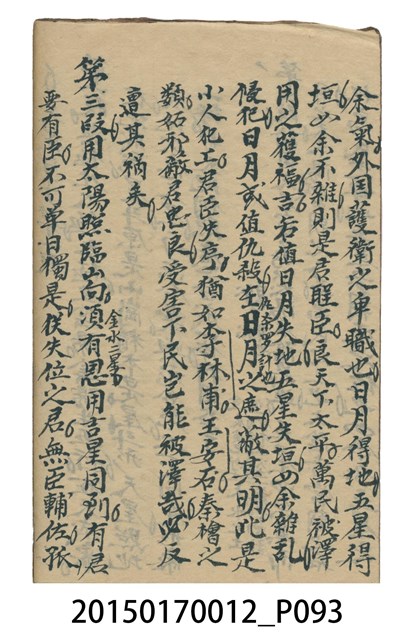 余氣外国護衛之卑職也日月得地五星得
垣四余不雜則是君聖臣良天下太平萬民被澤
用之獲福吉若值日月失地五星失垣四余雜乱
侵犯日月或值仇難在日月之庶敝其明此是
小人犯上君臣失序猶如李林甫王安石秦檜之
類妬邪敵君忠良受害下民豈能被澤哉必反
遭其禍矣
第三段用太陽照臨山向須有恩用吉星同到有君
金水二星
要有臣不可單日獨是後失位之君無臣輔佐孤
20150170012_P093